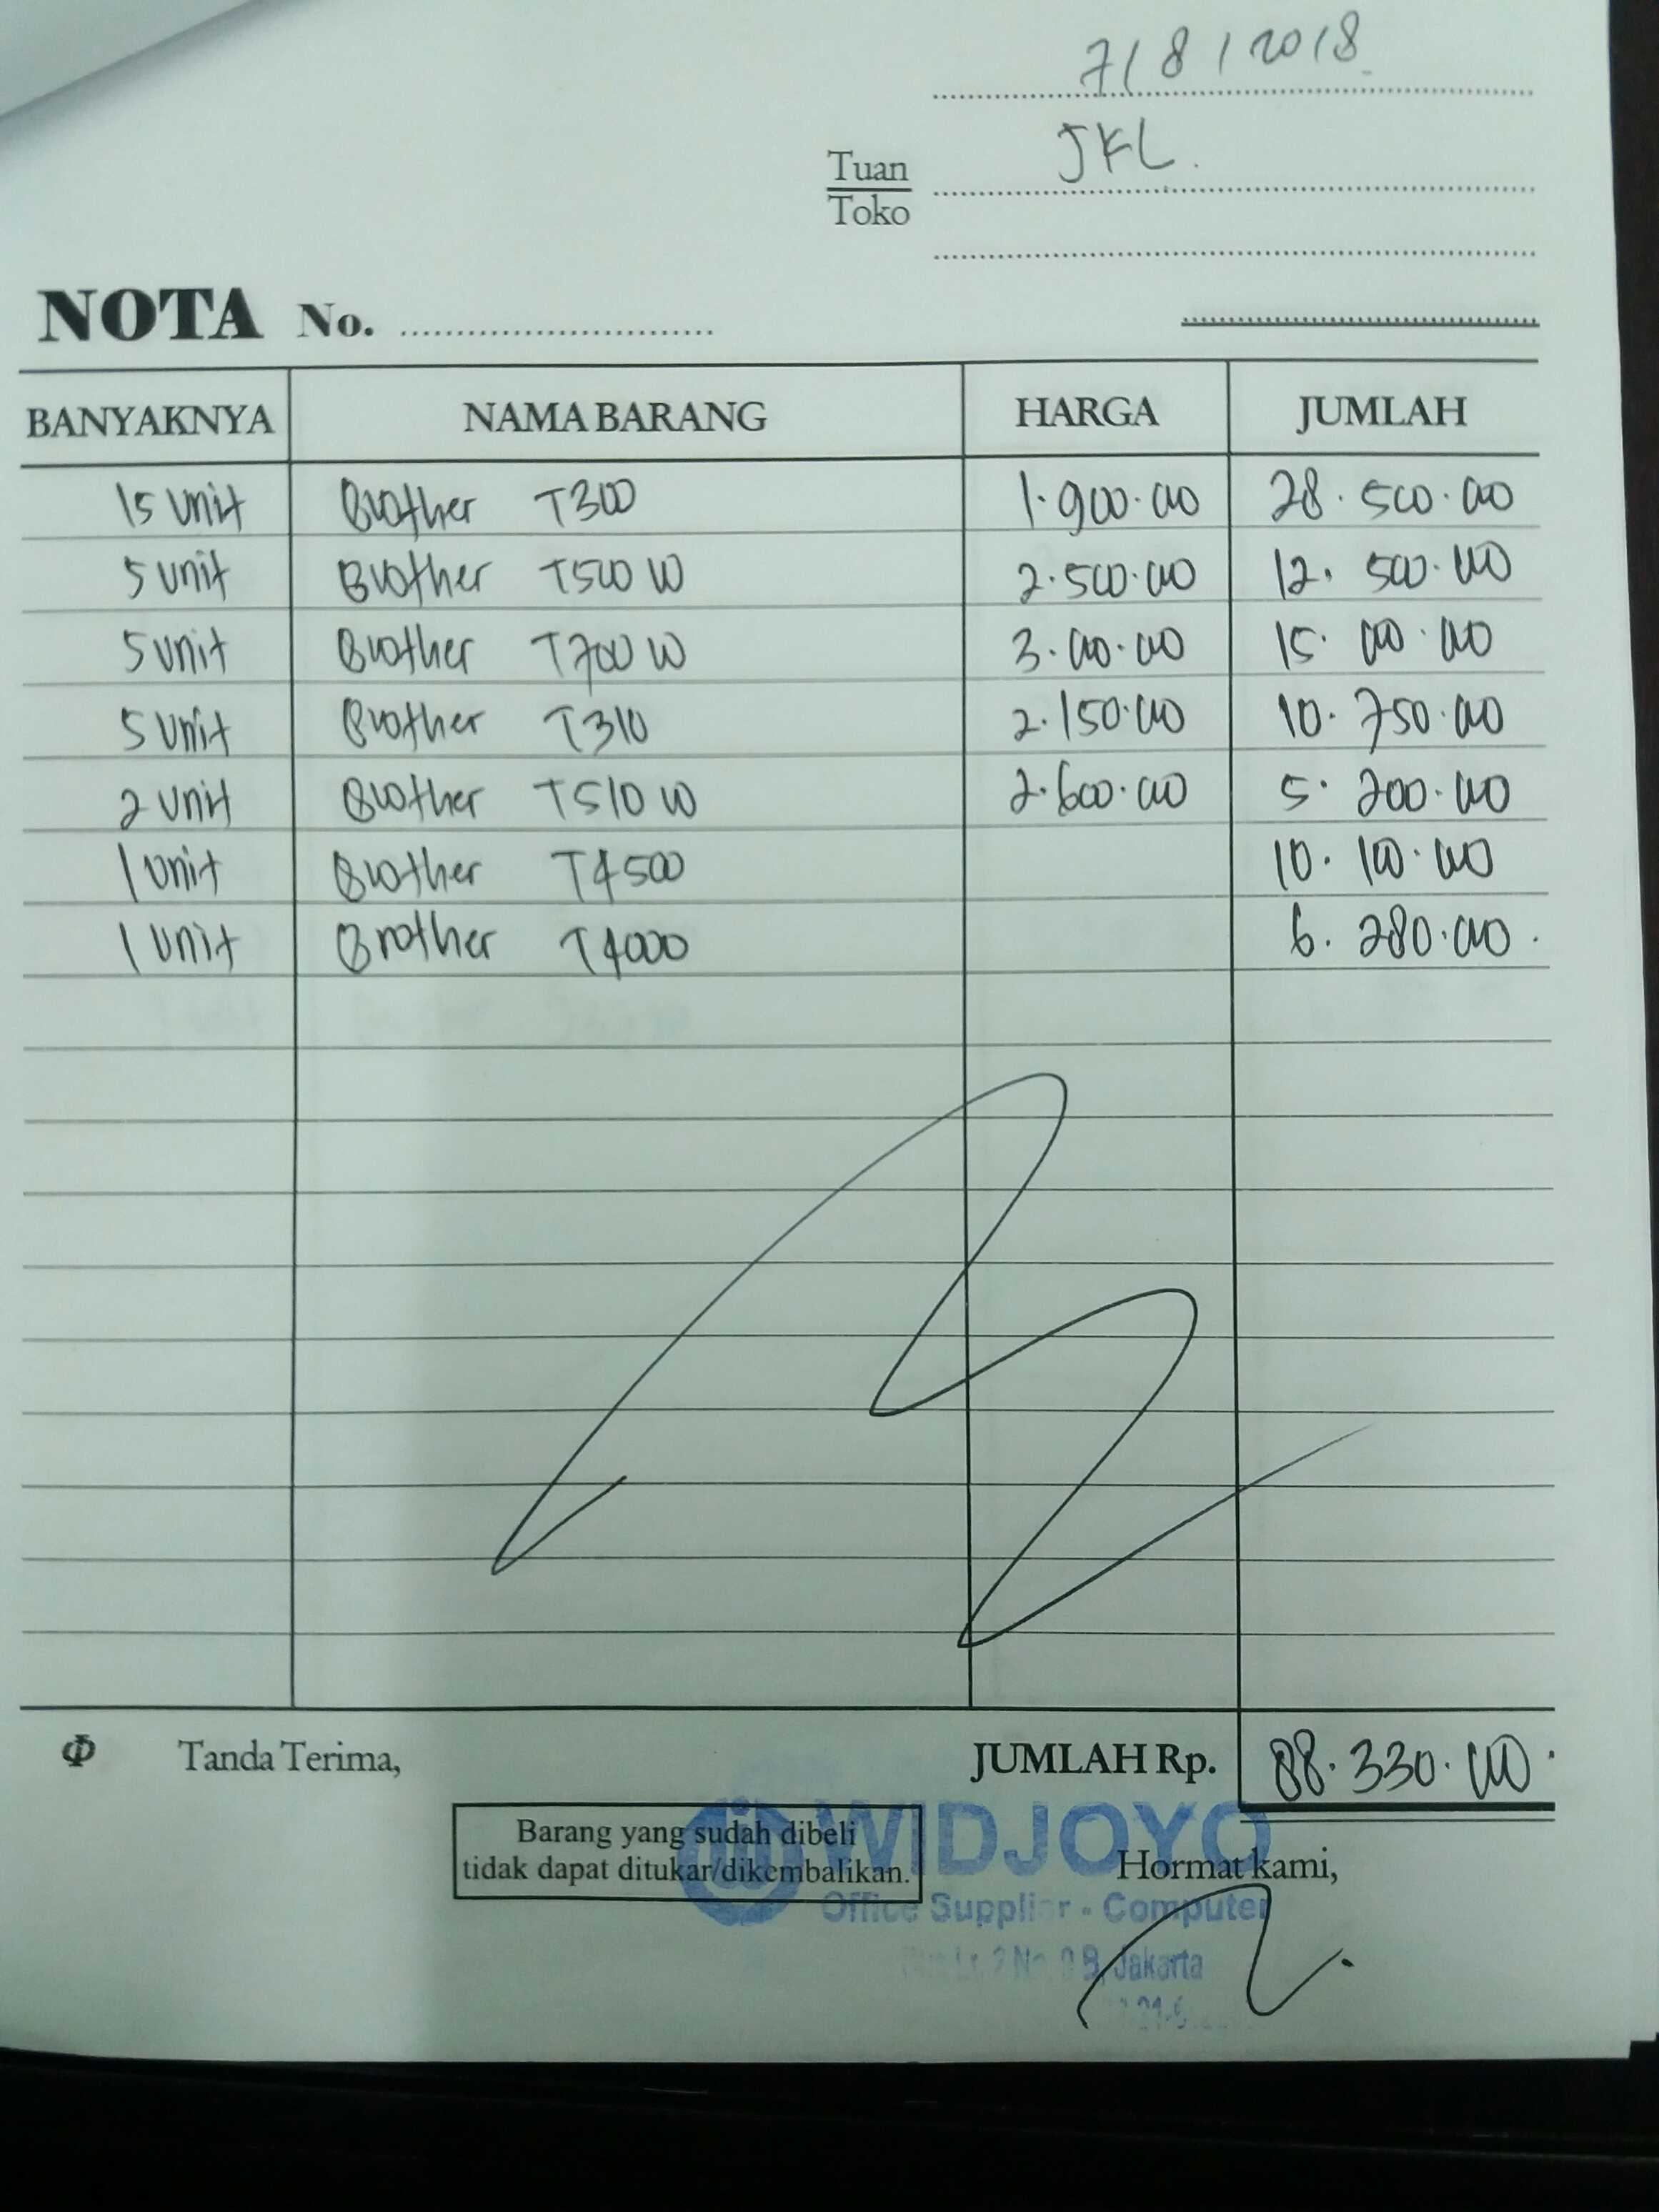 7/8/2018
Tuan JKL.
Toko
NOTA No.
BANYAKNYA NAMA BARANG HARGA JUMLAH
15 unit Brother T300 1.900.000 28.500.000
5 unit Brother T500 W 2.500.000 12.500.000
5 unit Brother T700 W 3.000.000 15.000.000
5 unit Brother T310 2.150.000 10.750.000
2 unit Brother T510 W 2.600.000 5.200.000
1 unit Brother T4500 10.100.000
1 unit Brother T4000 6.280.000.
Tanda Terima, JUMLAH Rp. 88.330.000.
Barang yang sudah dibeli
tidak dapat ditukar/dikembalikan.
WIDJOYO
Hormat kami,
Office Supplier - Computer
Jakarta